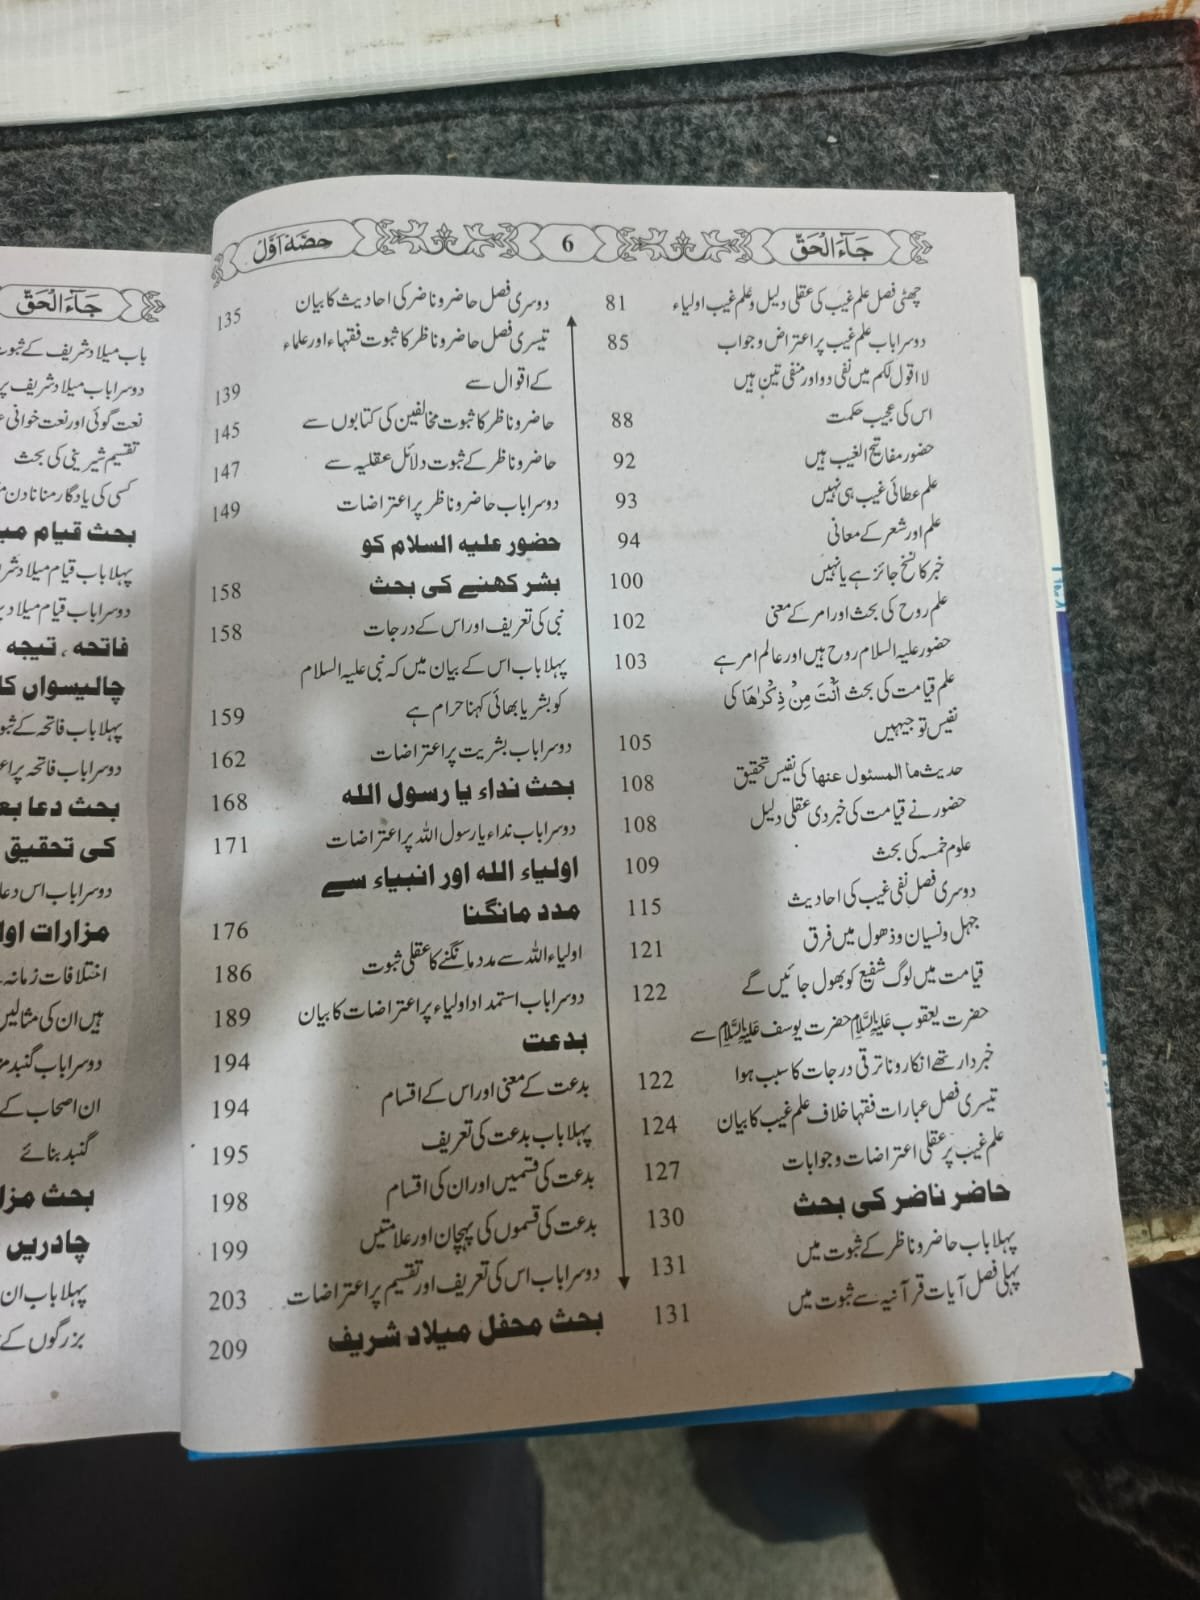 جَآءَالْحَقّ
6
حصّہ اوّل
چھٹی فصل علم غیب کی عقلی دلیل و علم غیب اولیاء 81
دوسرا باب علم غیب پر اعتراض و جواب 85
لا اقول لکم میں نفی دو اور منفی تین ہیں
اس کی عجیب حکمت 88
حضور مفاتیح الغیب ہیں 92
علم عطائی غیب ہی نہیں 93
علم اور شعر کے معانی 94
خبر کا نسخ جائز ہے یا نہیں 100
علم روح کی بحث اور امر کے معنی 102
حضور علیہ السلام روح ہیں اور عالم امر ہے 103
علم قیامت کی بحث اَنْتَ مِنْ ذِكْرٰهَا کی
نفیس توجیہیں 105
حدیث ما المسئول عنها کی نفیس تحقیق 108
حضور نے قیامت کی خبر دی عقلی دلیل 108
علوم خمسہ کی بحث 109
دوسری فصل نفی غیب کی احادیث 115
جہل و نسیان و ذھول میں فرق 121
قیامت میں لوگ شفیع کو بھول جائیں گے 122
حضرت یعقوب علیہ السلام حضرت یوسف علیہ السلام سے
خبردار تھے انکا رونا ترقی درجات کا سبب ہوا 122
تیسری فصل عبارات فقہا خلاف علم غیب کا بیان 124
علم غیب پر عقلی اعتراضات و جوابات 127
حاضر ناضر کی بحث 130
پہلا باب حاضر و ناظر کے ثبوت میں 131
پہلی فصل آیات قرآنیہ سے ثبوت میں 131
دوسری فصل حاضر و ناضر کی احادیث کا بیان 135
تیسری فصل حاضر و ناظر کا ثبوت فقہاء اور علماء
کے اقوال سے 139
حاضر و ناظر کا ثبوت مخالفین کی کتابوں سے 145
حاضر و ناظر کے ثبوت دلائل عقلیہ سے 147
دوسرا باب حاضر و ناظر پر اعتراضات 149
حضور علیہ السلام کو
بشر کھنے کی بحث 158
نبی کی تعریف اور اس کے درجات 158
پہلا باب اس کے بیان میں کہ نبی علیہ السلام
کو بشر یا بھائی کہنا حرام ہے 159
دوسرا باب بشریت پر اعتراضات 162
بحث نداء یا رسول اللہ 168
دوسرا باب نداء یا رسول اللہ پر اعتراضات 171
اولیاء اللہ اور انبیاء سے
مدد مانگنا 176
اولیاء اللہ سے مدد مانگنے کا عقلی ثبوت 186
دوسرا باب استمداد اولیاء پر اعتراضات کا بیان 189
بدعت 194
بدعت کے معنی اور اس کے اقسام 194
پہلا باب بدعت کی تعریف 195
بدعت کی قسمیں اور ان کی اقسام 198
بدعت کی قسموں کی پہچان اور علامتیں 199
دوسرا باب اس کی تعریف اور تقسیم پر اعتراضات 203
بحث محفل میلاد شریف 209
جَآءَالْحَقّ
باب میلاد شریف کے ثبوت
دوسرا باب میلاد شریف پر
نعت گوئی اور نعت خوانی
تقسیم شیرینی کی بحث
کسی کی یادگار منانا دن
بحث قیام
پہلا باب قیام میلاد
دوسرا باب قیام میلاد
فاتحہ ، تیجہ
چالیسواں کا
پہلا باب فاتحہ کے
دوسرا باب فاتحہ پر
بحث دعا
کی تحقیق
دوسرا باب اس دعا
مزارات
اختلافات زمانہ
ہیں ان کی مثالیں
دوسرا باب گنبد
ان اصحاب کے
گنبد بنائے
بحث
چادریں
پہلا باب ان
بزرگوں کے